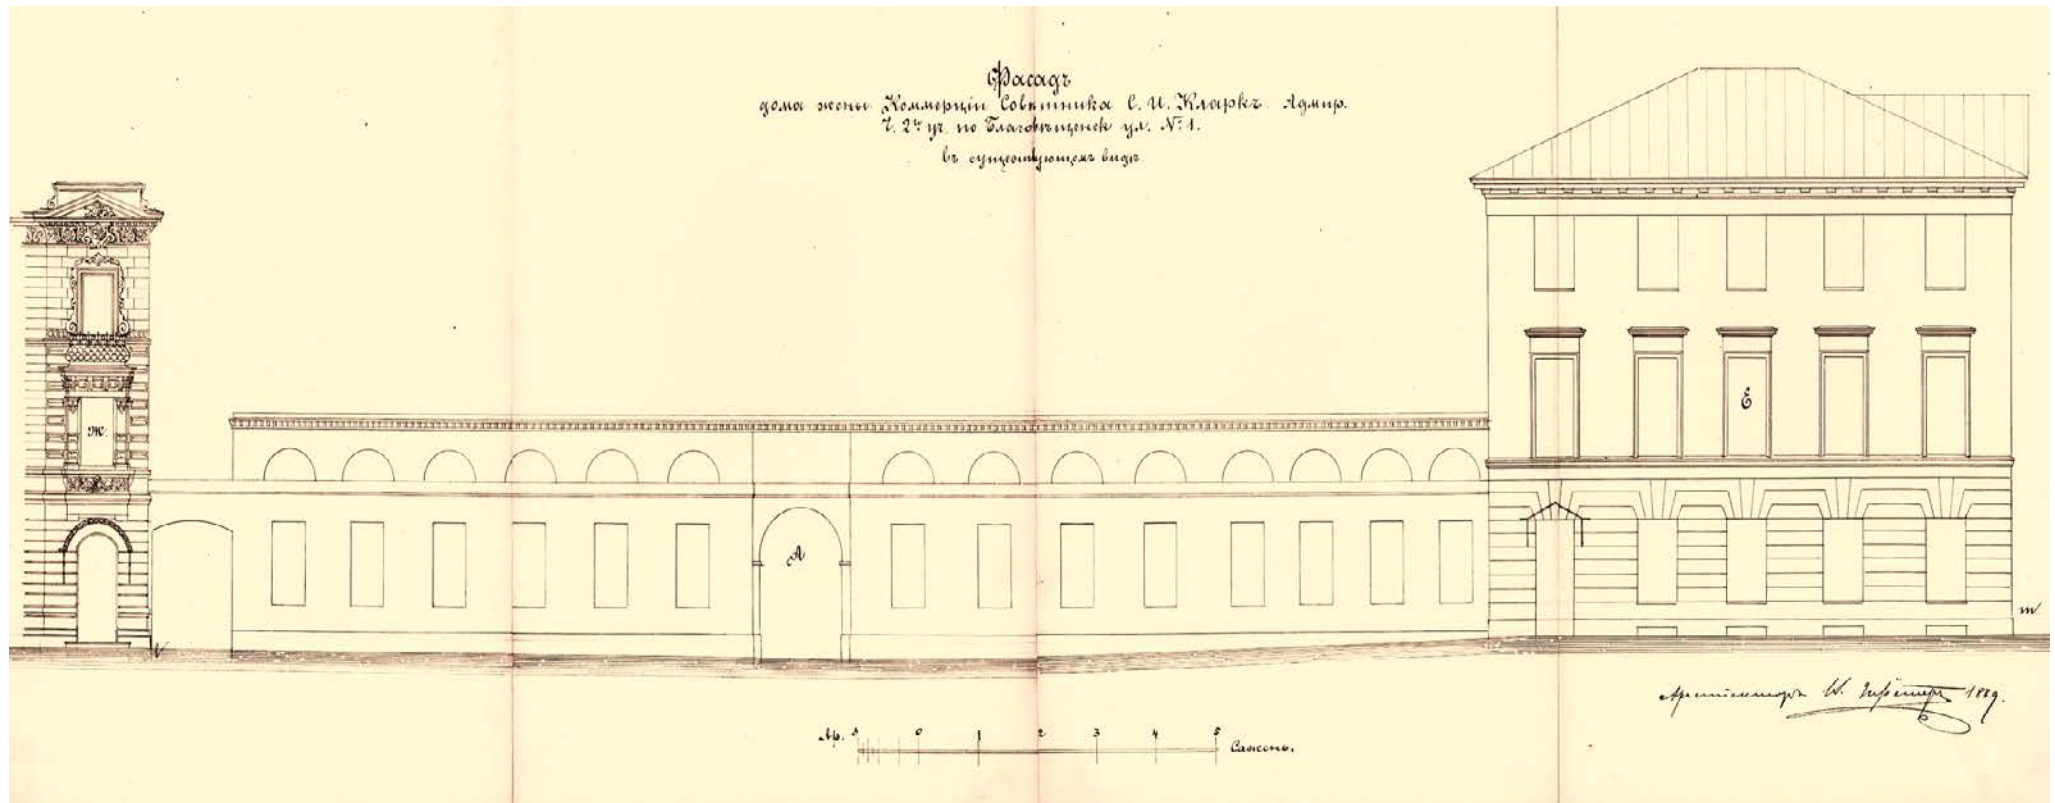 Фасадъ
дома жены Коммерціи Совѣтника С. И. Кларкъ. Адмир.
Ч. 2го уч. по Благовѣщенск ул. №: 1.
въ существующемъ видѣ.
Ж.
Е
А
N
m
Архитекторъ 1889.
Ар. 3 0 1 2 3 4 5 Сажень.